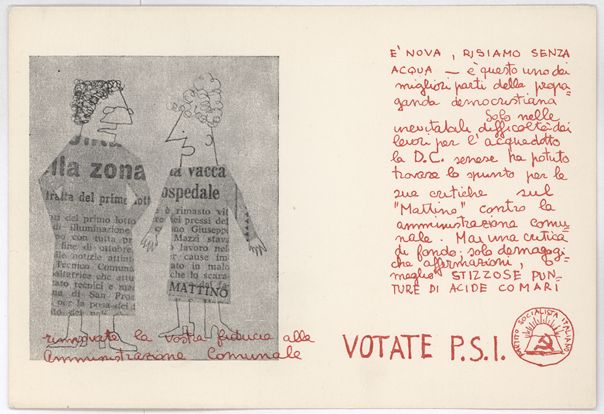 lla zona
tratta del primo lott
del primo lotto
di illuminazione
con tutta pr
fine di ottobre
le notizie attin
Tecnico Comuna
che atte
tecnici e
di San Pros
per la posa dei
vacca
ospedale
è rimasto vil
pressi del
Giuseppe
Mazzi stava
lavoro nel
per cause im
in malo
che lo scara
MATTINO
rinnovate la vostra fiducia alla
Amministrazione Comunale
E' NOVA, RISIAMO SENZA
ACQUA — è questo uno dei
migliori parti della propa=
ganda democristiana
Solo nelle
inevitabili difficoltà dei
lavori per l'acquedotto
la D.C. senese ha potuto
trovare lo spunto per le
sue critiche sul
"Mattino" contro la
amministrazione comu=
nale. Mai una critica
di fondo; solo demagogi=
che affermazioni,
meglio STIZZOSE PUN=
TURE DI ACIDE COMARI
VOTATE P.S.I.
PARTITO SOCIALISTA ITALIANO